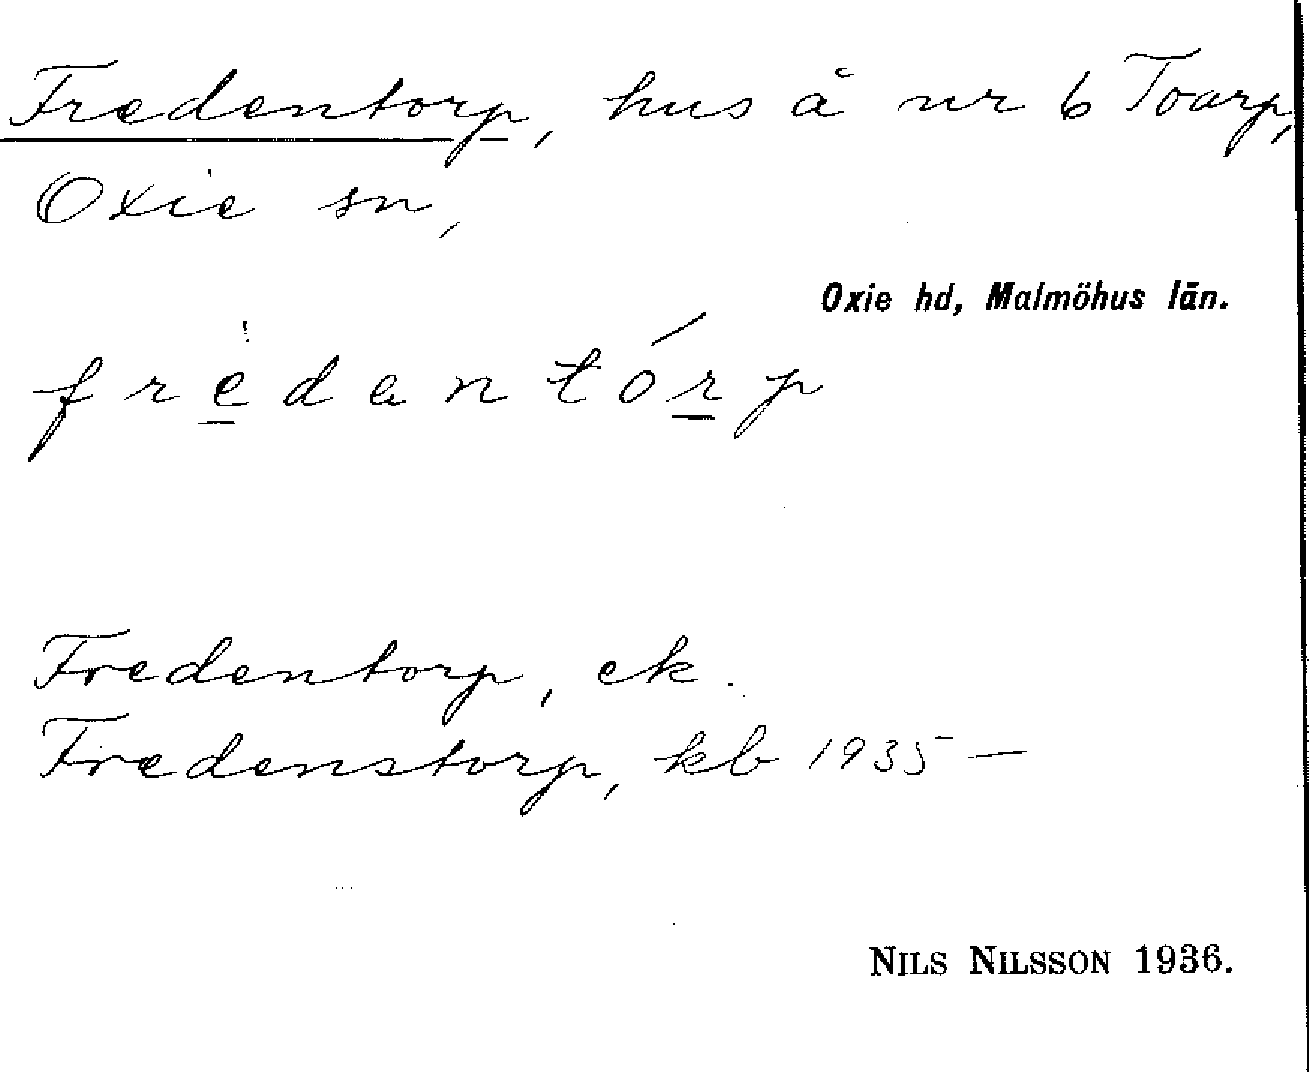 Fredentorp, hus å nr 6 Toarp,
Oxie sn,
Oxie hd, Malmöhus län.
frèdantórp
Fredentorp, ek.
Fredenstorp, kb 1935 —
NILS NILSSON 1936.